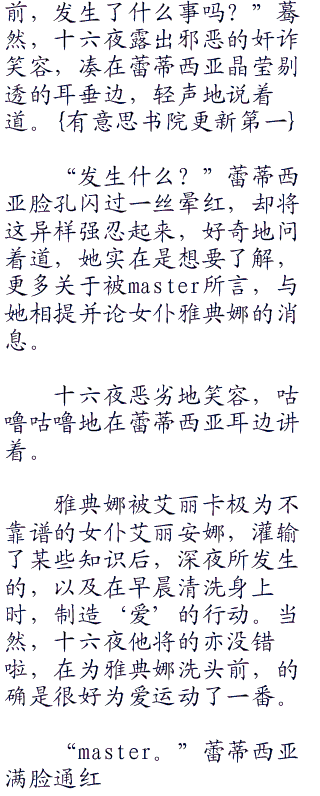 前，发生了什么事吗？”蓦
然，十六夜露出邪恶的奸诈
笑容，凑在蕾蒂西亚晶莹剔
透的耳垂边，轻声地说着
道。{有意思书院更新第一}
“发生什么？”蕾蒂西
亚脸孔闪过一丝晕红，却将
这异样强忍起来，好奇地问
着道，她实在是想要了解，
更多关于被master所言，与
她相提并论女仆雅典娜的消
息。
十六夜恶劣地笑容，咕
噜咕噜地在蕾蒂西亚耳边讲
着。
雅典娜被艾丽卡极为不
靠谱的女仆艾丽安娜，灌输
了某些知识后，深夜所发生
的，以及在早晨清洗身上
时，制造‘爱’的行动。当
然，十六夜他将的亦没错
啦，在为雅典娜洗头前，的
确是很好为爱运动了一番。
“master。”蕾蒂西亚
满脸通红